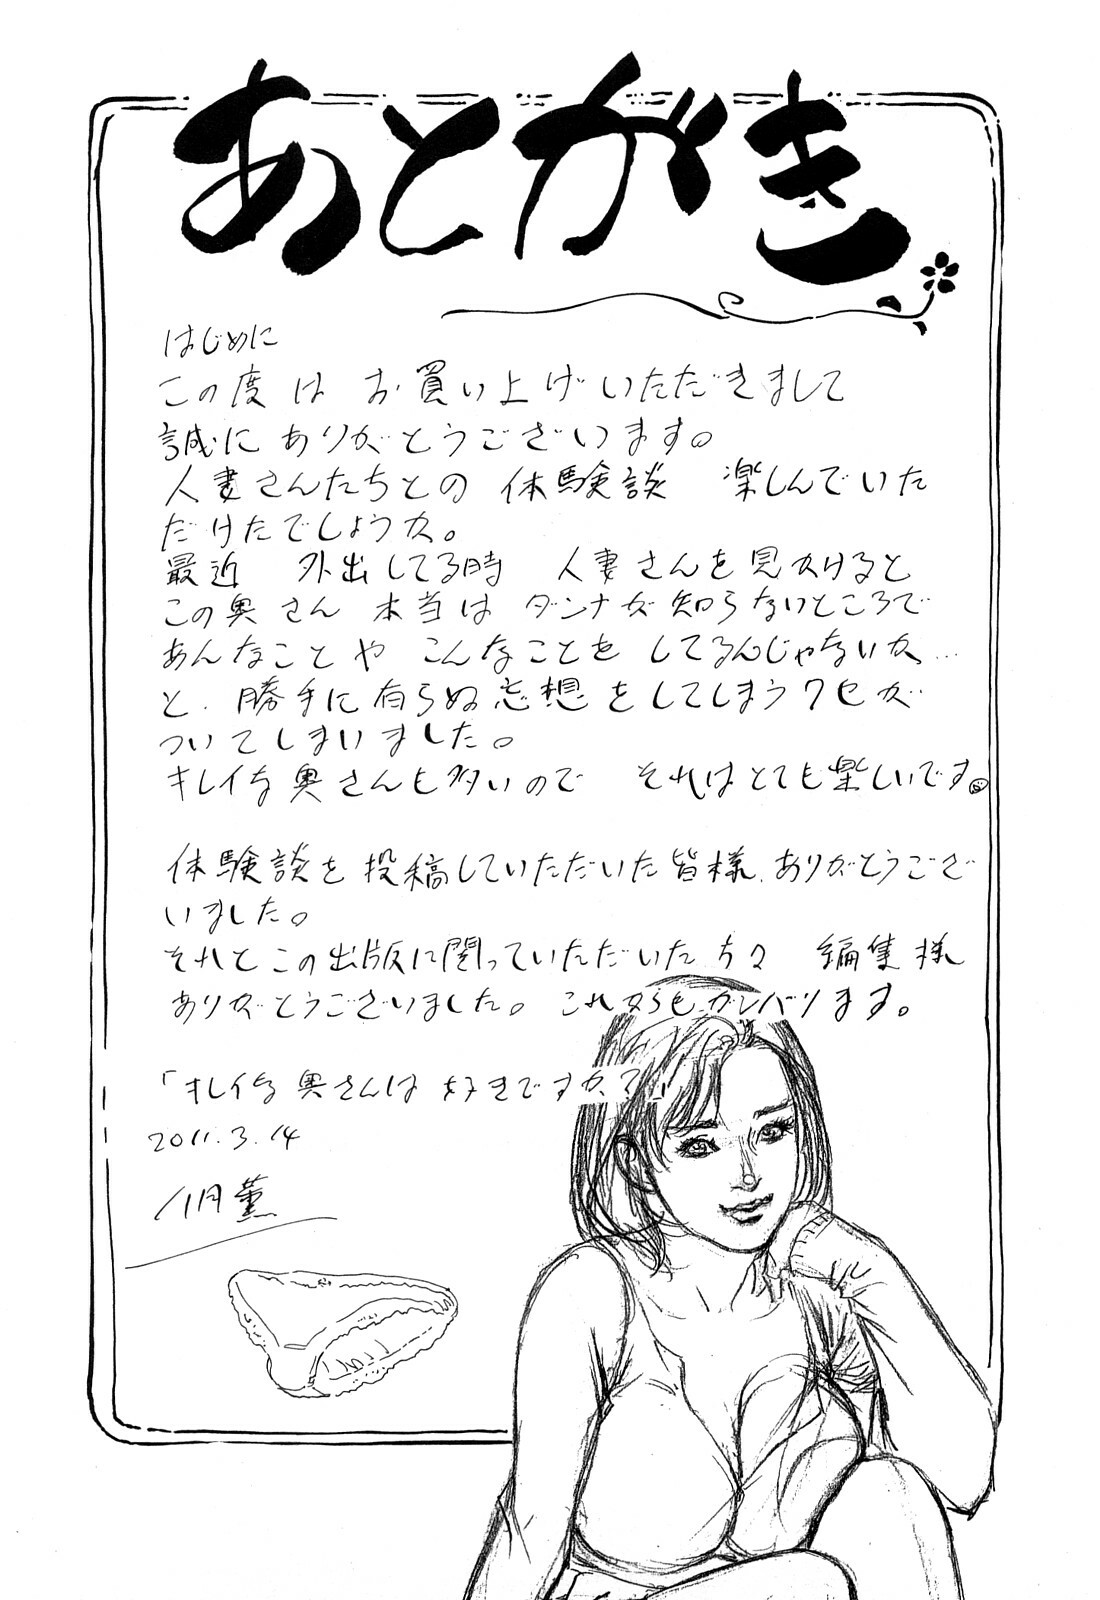 あとがき
はじめに
この度は お買い上げいただきまして
誠にありがとうございます。
人妻さんたちとの 体験談 楽しんでいた
だけたでしょうか。
最近 外出してる時 人妻さんを見かけると
この奥さん 本当は ダンナが知らないところで
あんなことや こんなことを してるんじゃないか…
と、勝手に有らぬ妄想をしてしまうクセが
ついてしまいました。
キレイな奥さんも多いので それはとても楽しいです。
体験談を投稿していただいた皆様、ありがとうござ
いました。
それとこの出版に関っていただいた方々 編集様
ありがとうございました。これからもガンバります。
「キレイな奥さんは好きですか?」
2011.3.14
八月薫